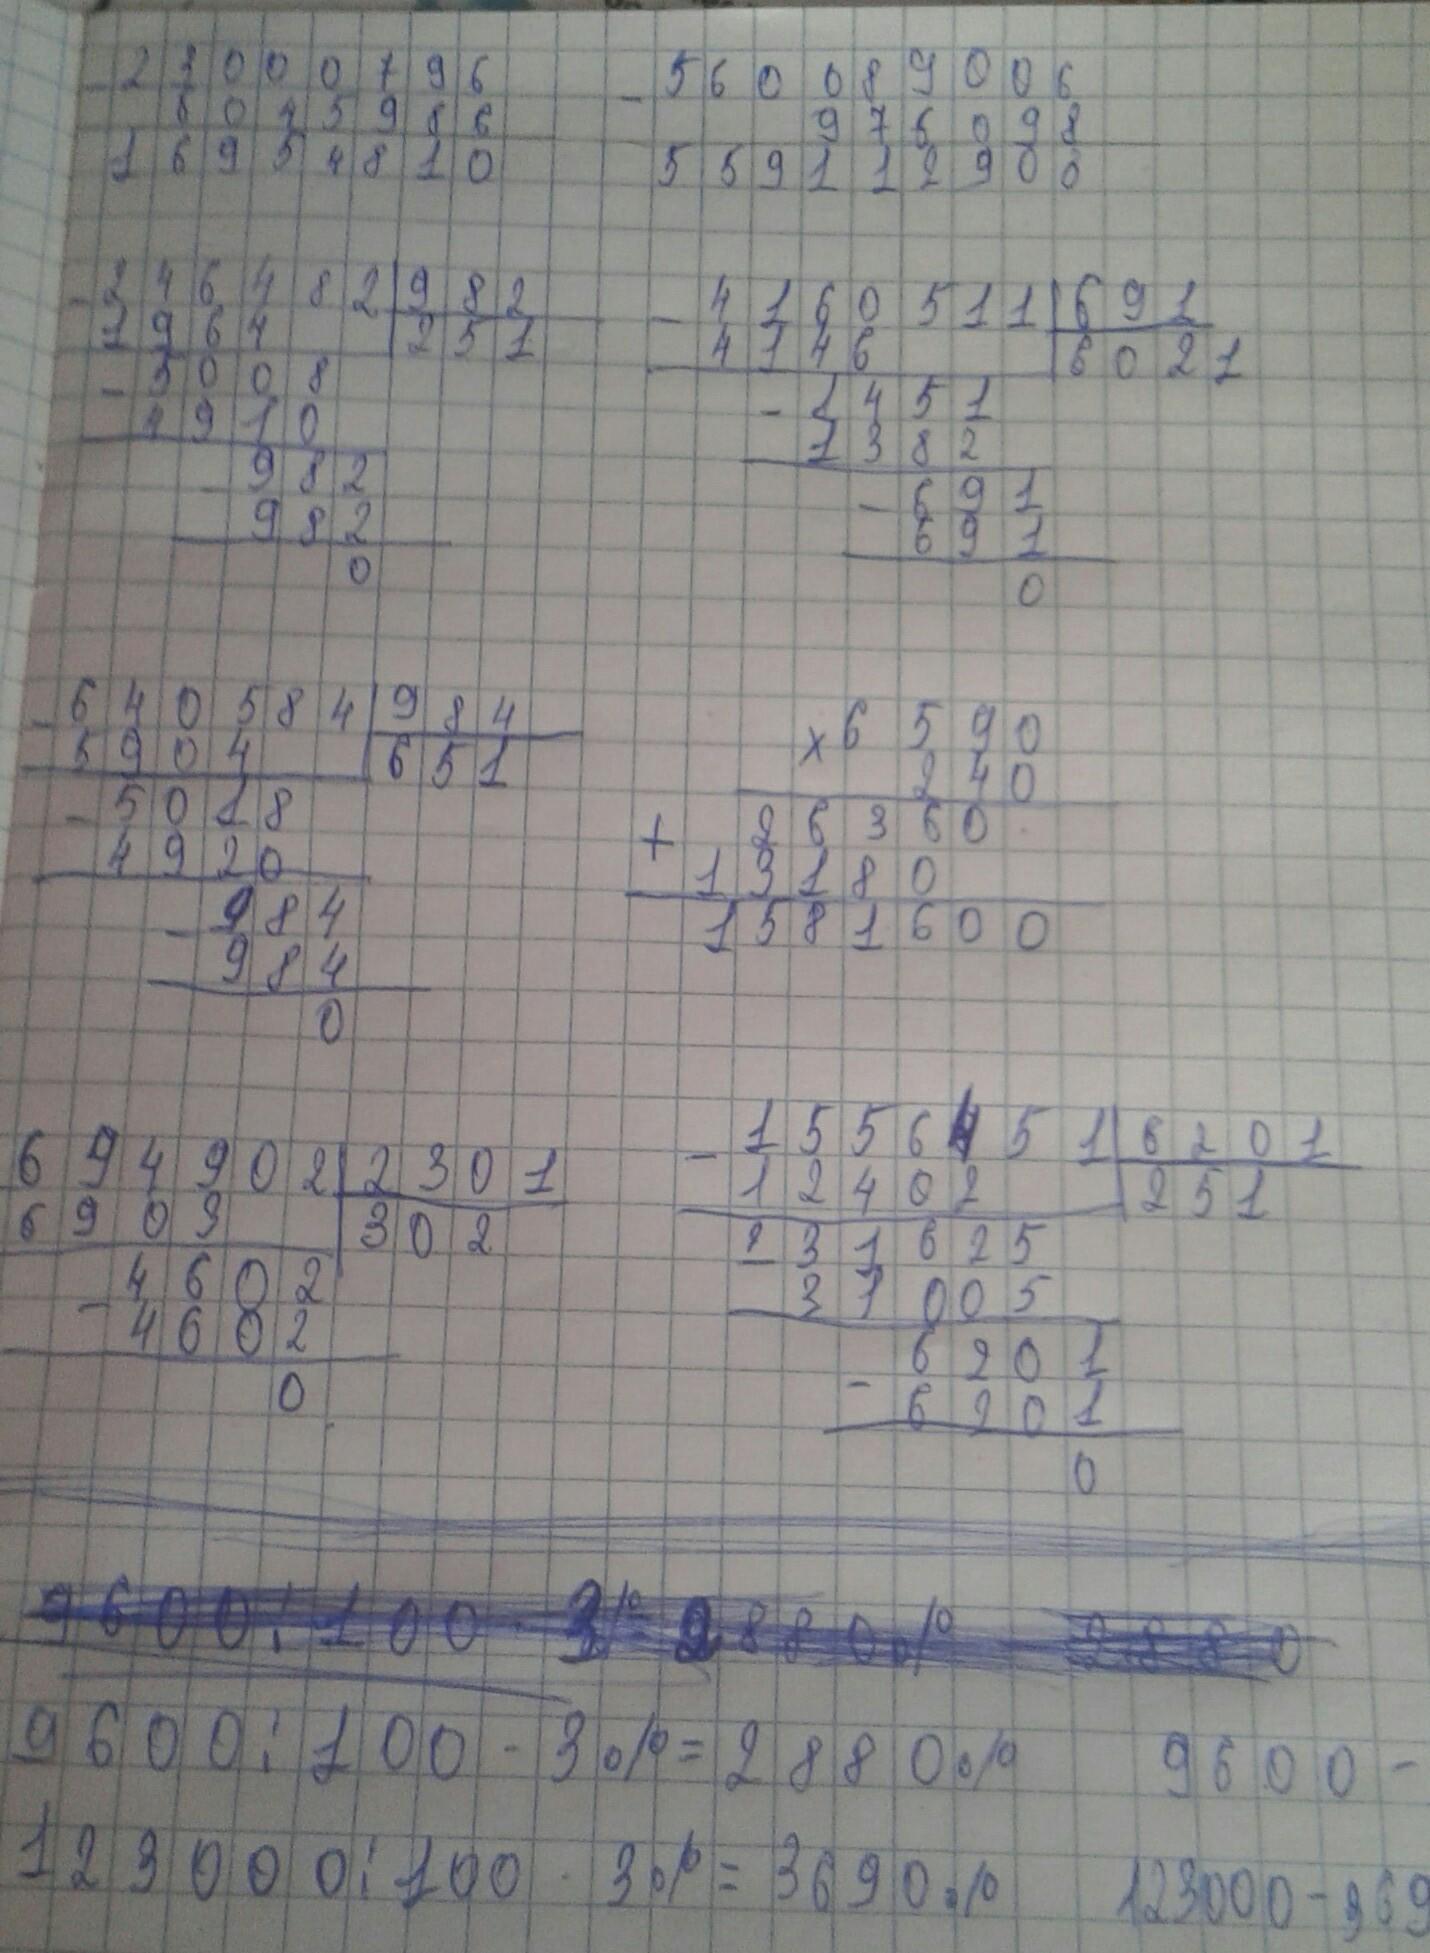 - 23000796
6045986
16954810
- 560089006
976098
559112908
- 246482 982
1964 251
- 5008
4910
- 982
982
0
- 4160511 691
4146 6021
- 1451
1382
- 691
691
0
- 640584 984
5904 651
- 5018
4920
- 984
984
0
× 6590
240
+ 26360
13180
1581600
694902 2301
6903 302
- 4602
4602
0
- 1556451 6201
12402 251
- 31625
31005
- 6201
6201
0
9600:100·3%=2880% 9600-
123000:100·3%=3690% 123000-369